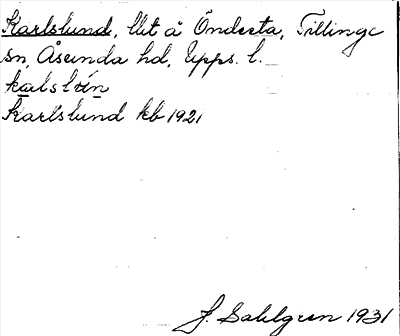 Karlslund, lht å Öndersta, Tillinge
sn, Åsunda hd, Upps. l.
kalslún
Karlslund kb 1921
J. Sahlgren 1931